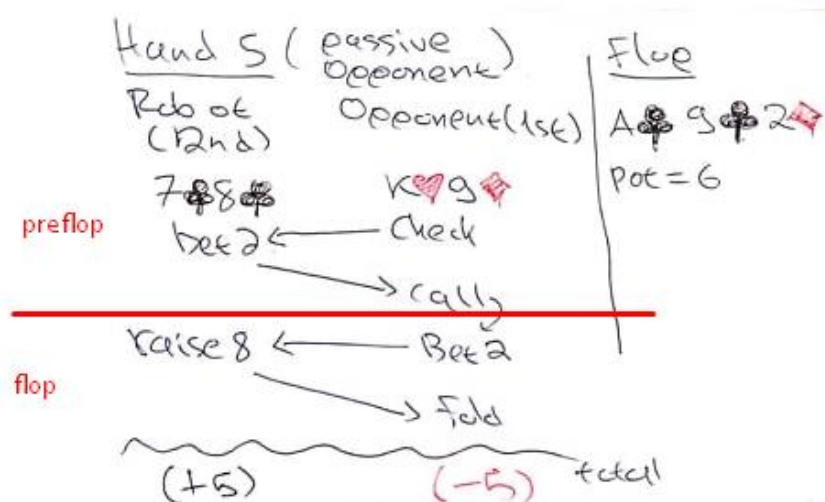 Hand 5 (passive Opponent)
Robot (2nd)
Opponent (1st)
7♣8♣
K♥9♦
preflop
bet2
Check
Call
raise8
Bet2
flop
fold
(+5)
(-5)
total
Flop
A♣ 9♣ 2♦
Pot = 6